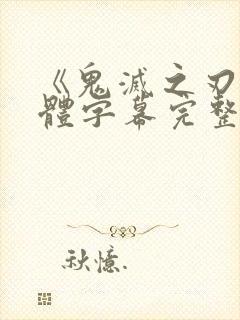 《鬼滅之刃
體字幕完整
秋憶.